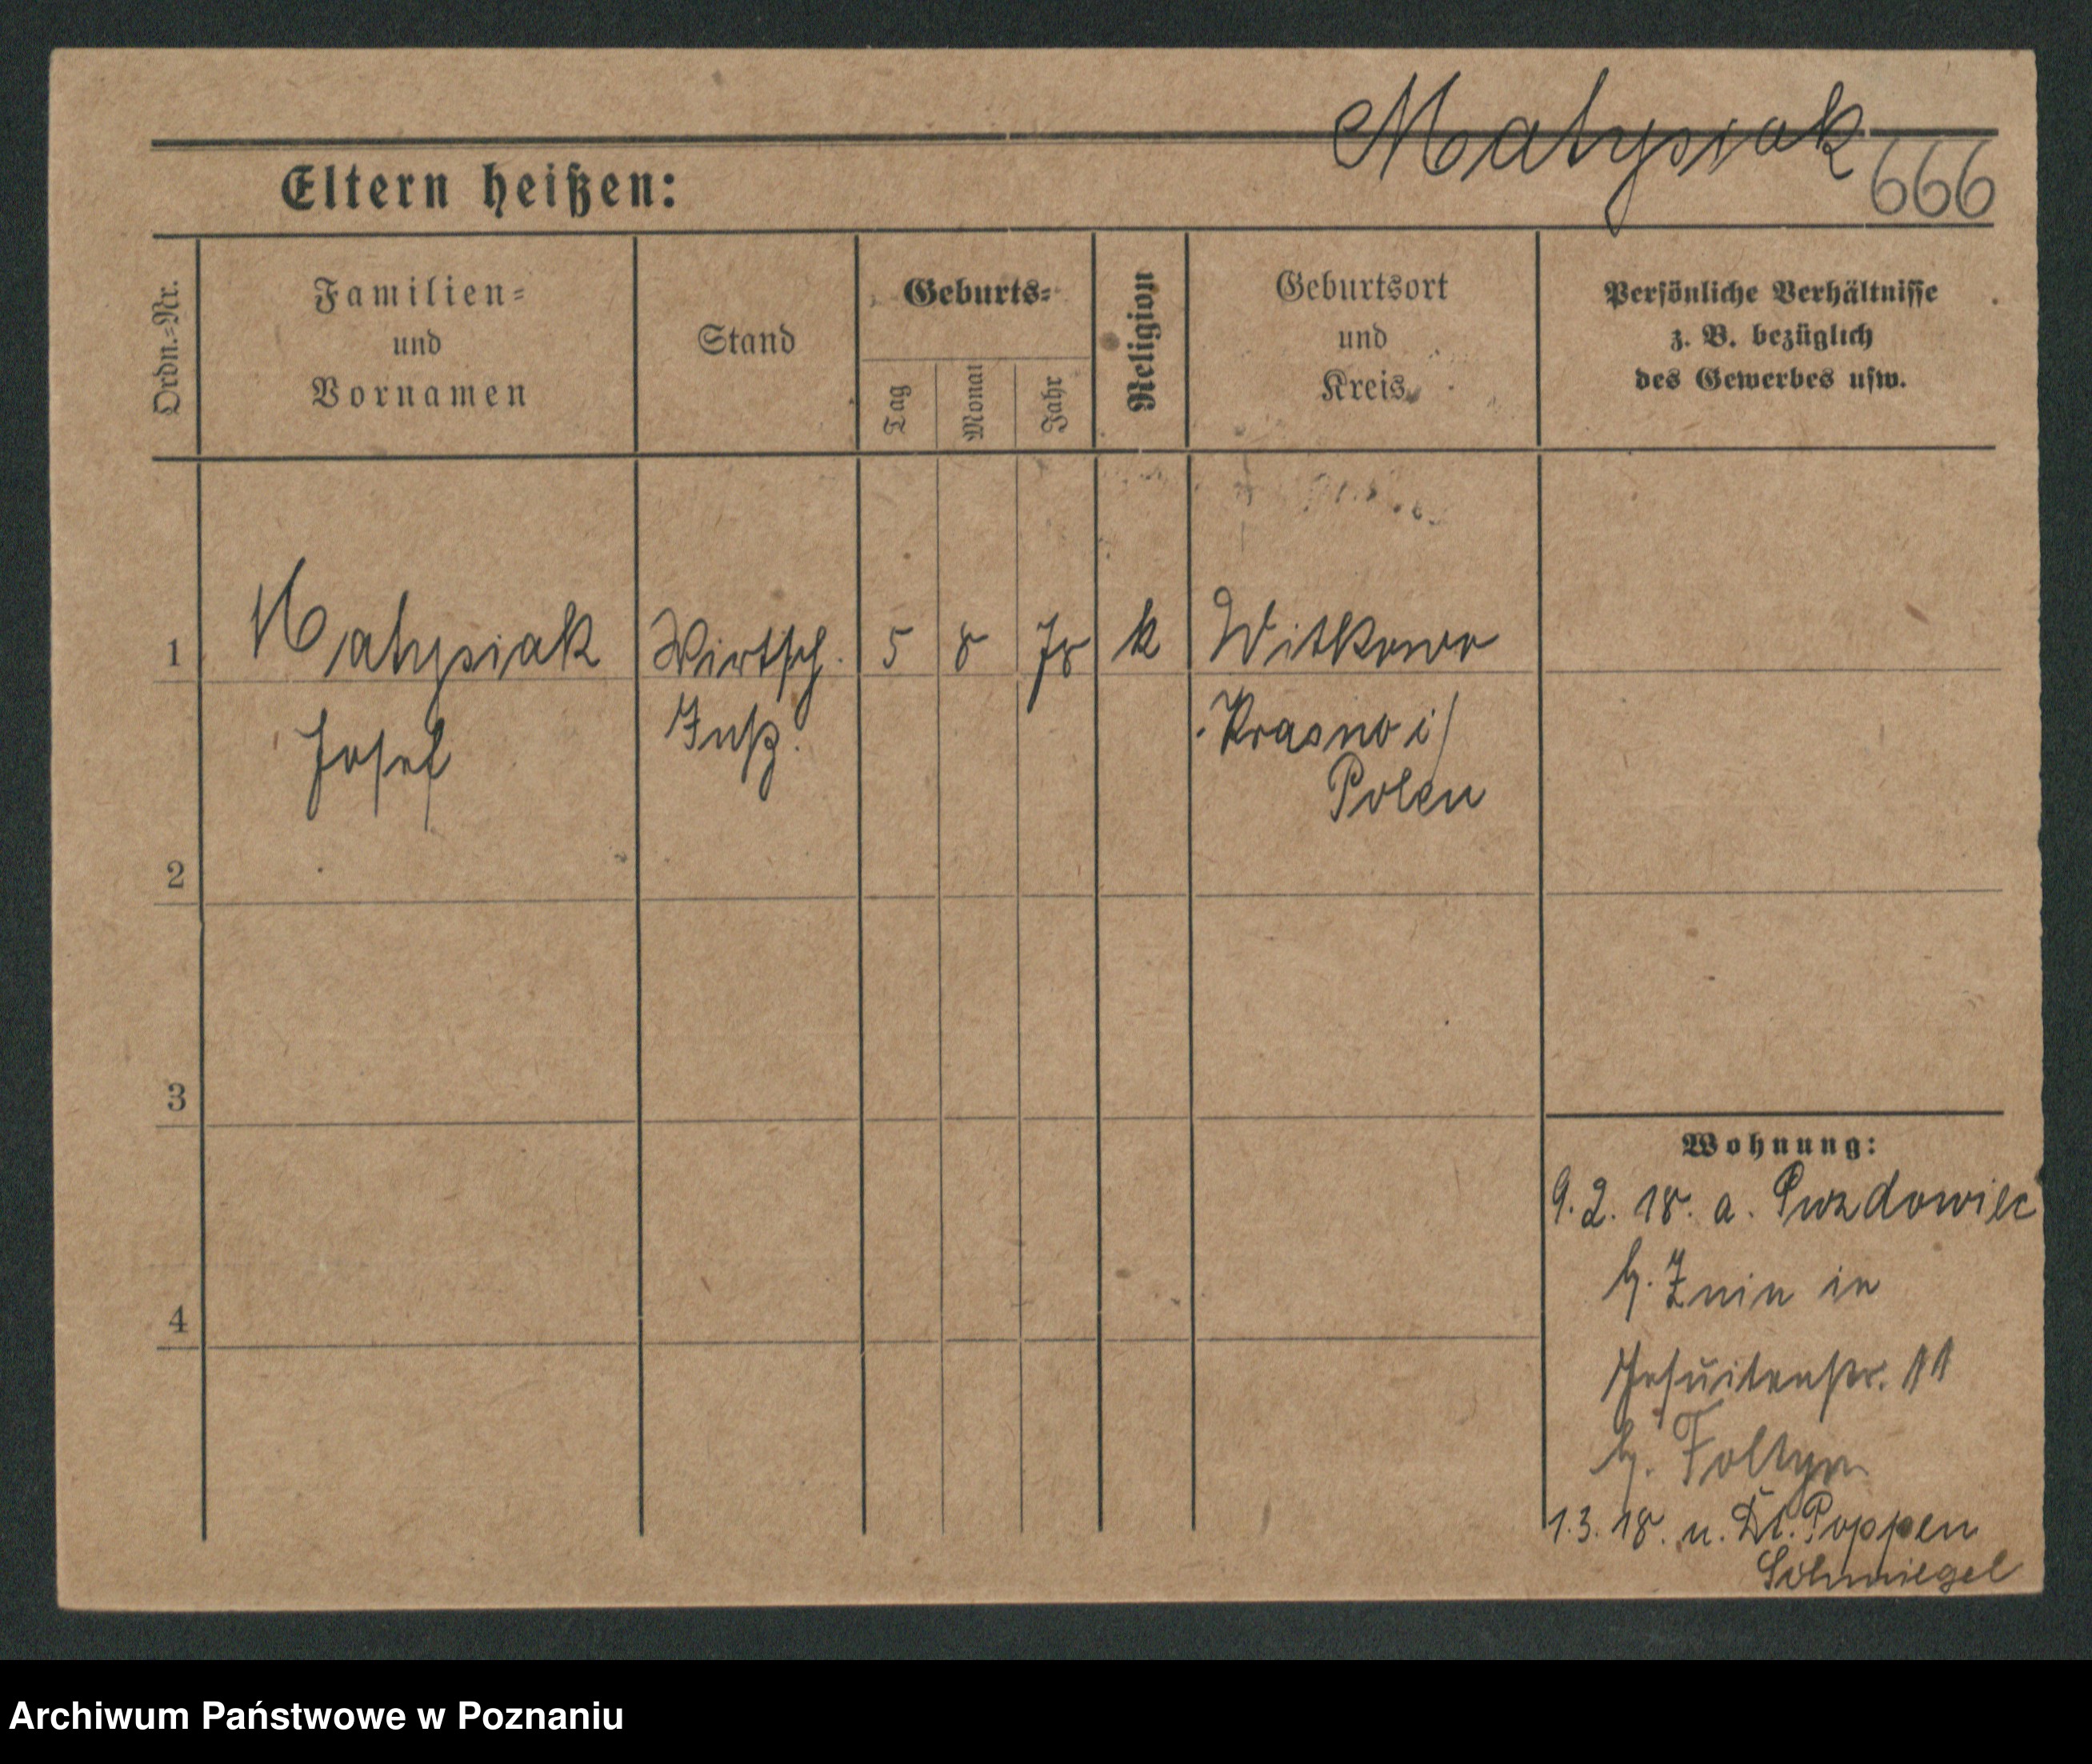 Matysiak
666
Eltern heißen:
Ordn.=Nr.
Familien=
und
Vornamen
Stand
Geburts=
Tag
Monat
Jahr
Religion
Geburtsort
und
Kreis
Persönliche Verhältnisse
z. B. bezüglich
des Gewerbes usw.
1 Matysiak Wirtsch. 5 8 78 k Witkowo
Josef Insp. Krasno i/
Polen
2
3
4
Wohnung:
9. 2. 18. a.
b. Znin in
Jesuitenstr. 11
b. Foltyn
1. 3. 18. n. Dt. Poppen
Schmiegel
Archiwum Państwowe w Poznaniu